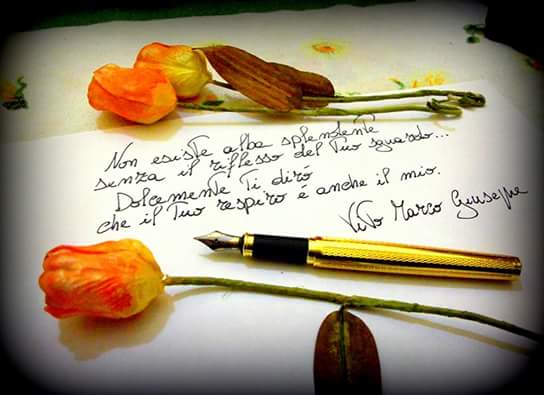 Non esiste alba splendente
senza il riflesso del Tuo sguardo...
Dolcemente Ti dirò
che il Tuo respiro é anche il mio.
Vito Marco Giuseppe